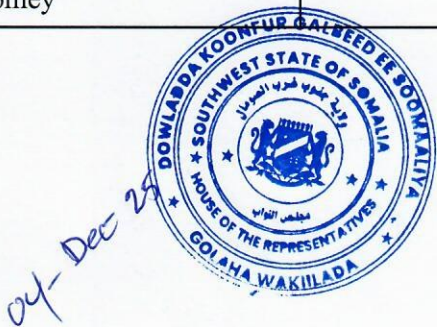 DOWLADDA KOONFUR GALBEED EE SOOMAALIYA
SOUTHWEST STATE OF SOMALIA
ولاية جنوب غرب الصومال
مجلس النواب
HOUSE OF THE REPRESENTATIVES
GOLAHA WAKIILADA
04-Dec 25